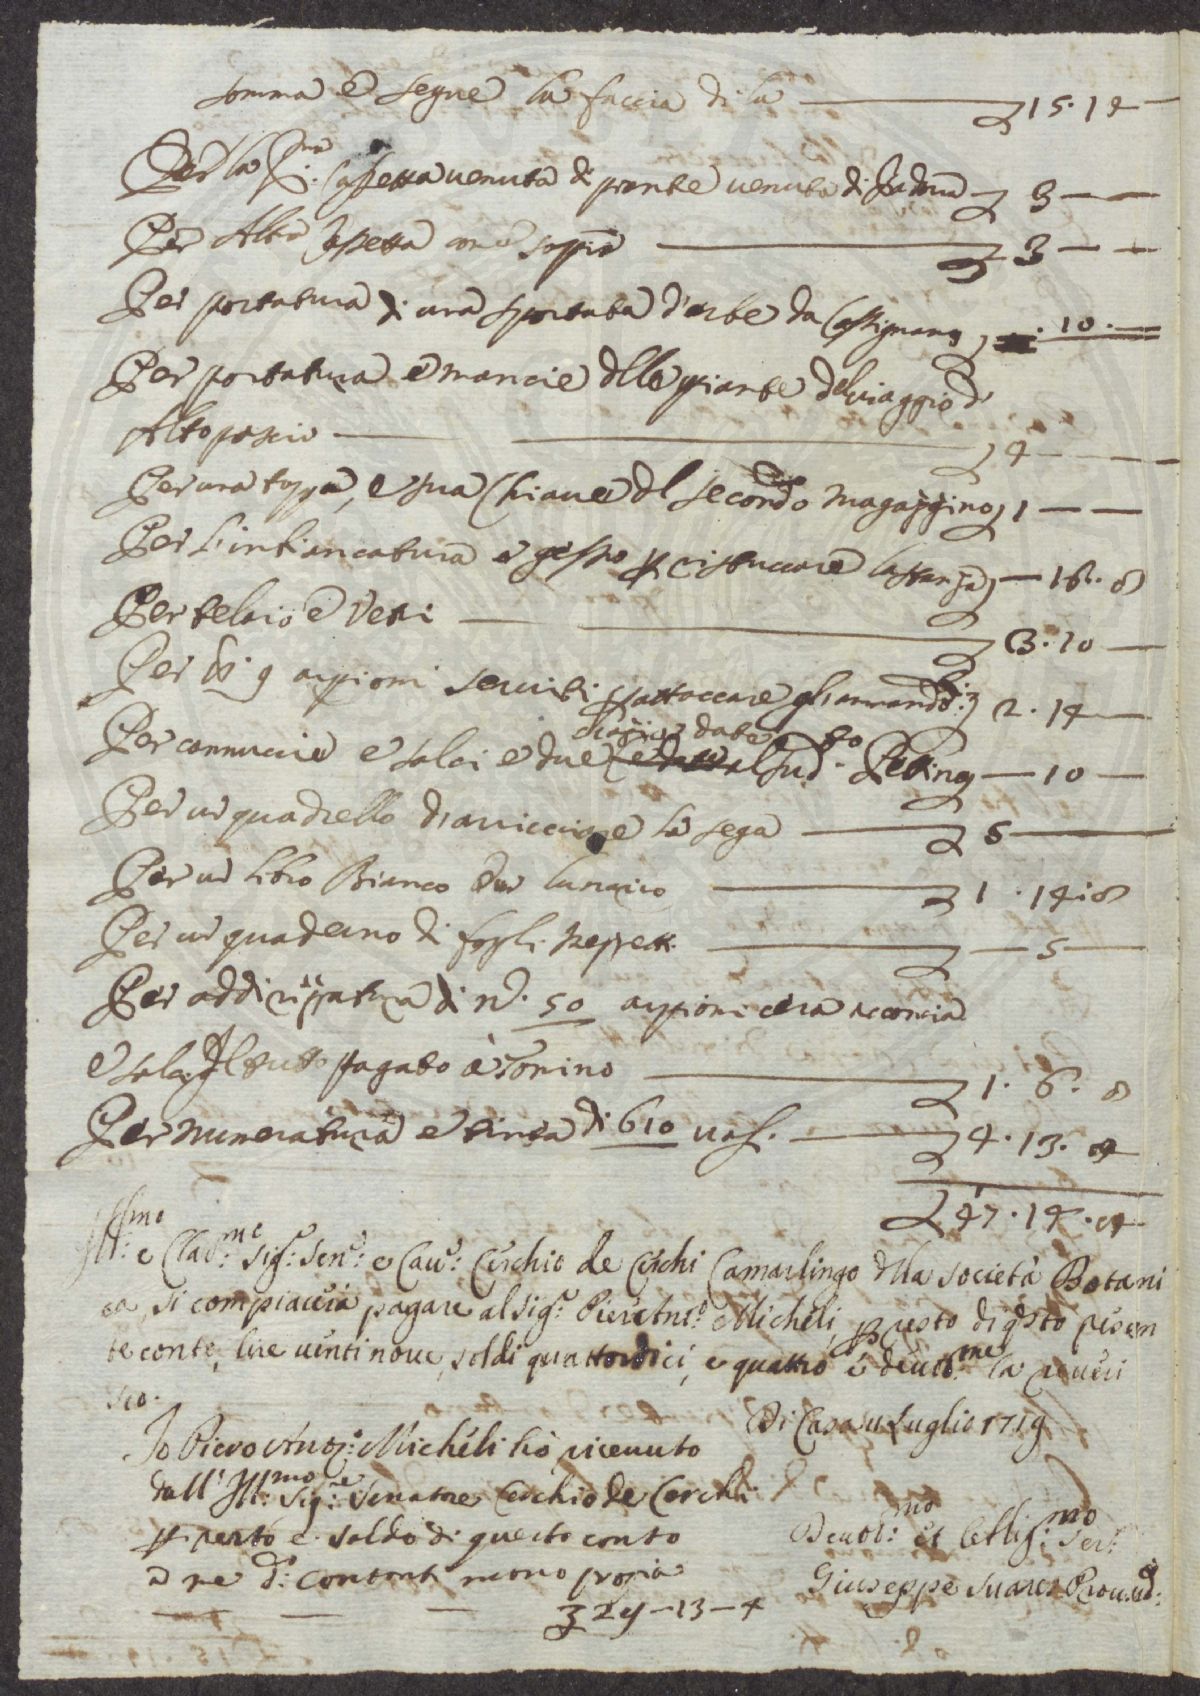 Somma e segue la faccia di la — £ 15.14 —
Per la P.ma Cassetta venuta di piante venuta di Padova £ 3 — —
Per Altra Cassetta come sopra — £ 3 — —
Per portatura di una sportata d'erbe da Cassignano £ — . 10 . —
Per portatura e mancie dlle piante del viaggio d'
Altopascio — £ 4 — —
Per una toppa, e sua Chiave dl secondo magazzino £ 1 — —
Per l'imbiancatura e gesso p ristuccare la stanza £ — 16. 8
Per telaio e Vetri — £ 3.10 —
Per N. 9 arpioni serviti p attaccare gli £ 2.14 —
Per cannuccie e salci e due date al sud.to £ — 10 —
Per un quadrello d'arriccciare la sega — £ 5 —
Per un libro Bianco per lunario — £ 1 . 14:8
Per un quaderno di fogli — £ — 5 —
Per addirizzatura di N. 50 arpioni cera acconcia
e salci Il tutto pagato à Tonino — £ 1. 6. 8
Per numeratura e tinta di 610 vasi. — £ 4.13.4
£ 47.14.4
Ill:mo e Clar:mo Sig:r Sen:r e Cav:r Cerchio de Cerchi Camarlingo dlla Società Botani
ca, si compiaccia pagare al Sig:r Pier Ant:o Micheli, p resto di qsto presen
te conto, lire venti nove, soldi quattordici, e quattro e devot:me la reveri
sco.
Di Casa 11 Luglio 1719
Io Piero Ant:o Micheli hò ricevuto
dall' Ill:mo Sig:re Senatore Cerchio de Cerchi
p resto e saldo di questo conto
a me d: contanti mano propia
— — — £ 29-13-4
Devot:mo et Obblig:mo Ser:
Giuseppe Suares Provved: